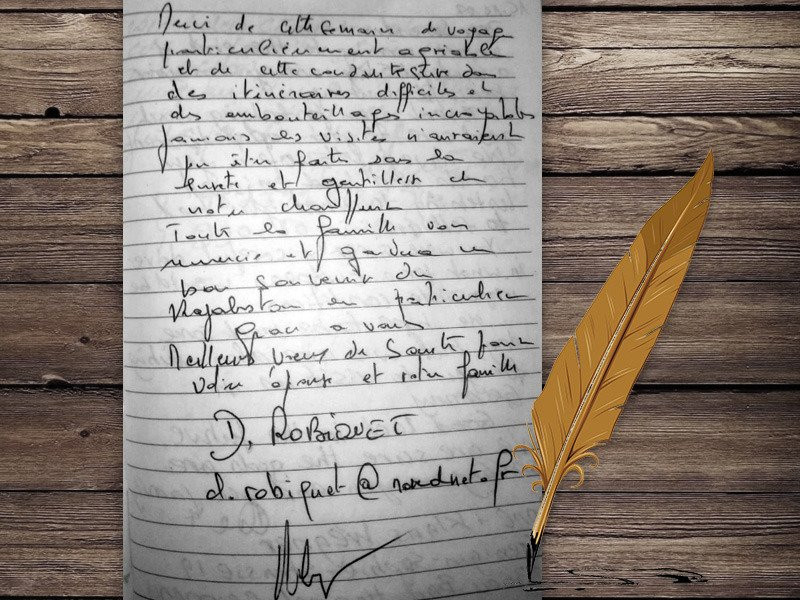 Merci de cette semaine de voyage
particulièrement agréable
et de cette conduite sure dans
des itinéraires difficiles et
des embouteillages incroyables
jamais les visites n'auraient
pu être faites sans la
sureté et gentillesse de
notre chauffeur
Toute la famille vous
remercie et gardera un
bon souvenir du
Rajahstan en particulier
grace a vous
Meilleurs vœux de Santé pour
votre épouse et votre famille
D. ROBIQUET
d.robiquet@nordnet.fr